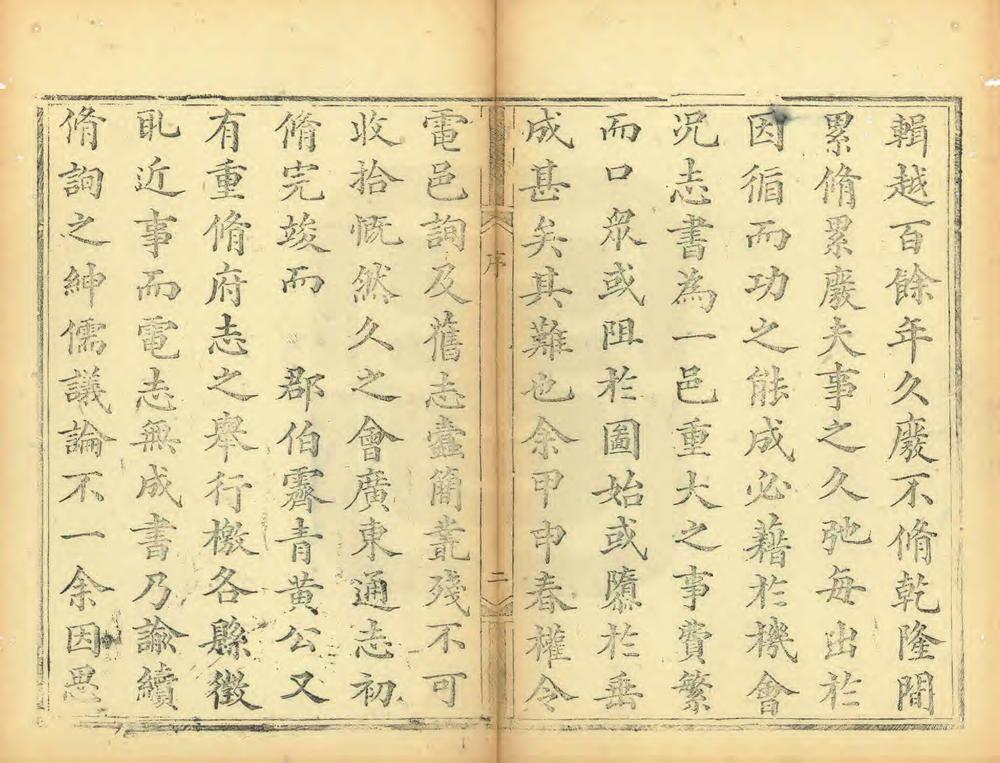 輯越百餘年久廢不脩乾隆間
累脩累廢夫事之久弛每出於
因循而功之能成必藉於機會
况志書為一邑重大之事費繁
而口衆或阻於圖始或隳於垂
成甚矣其難也余甲申春權令
序
二
電邑詢及舊志蠹簡叢殘不可
收拾慨然久之會廣東通志初
脩完竣而 郡伯霽青黃公又
有重脩府志之舉行檄各縣徵
取近事而電志無成書乃諭續
脩詢之紳儒議論不一余因悉